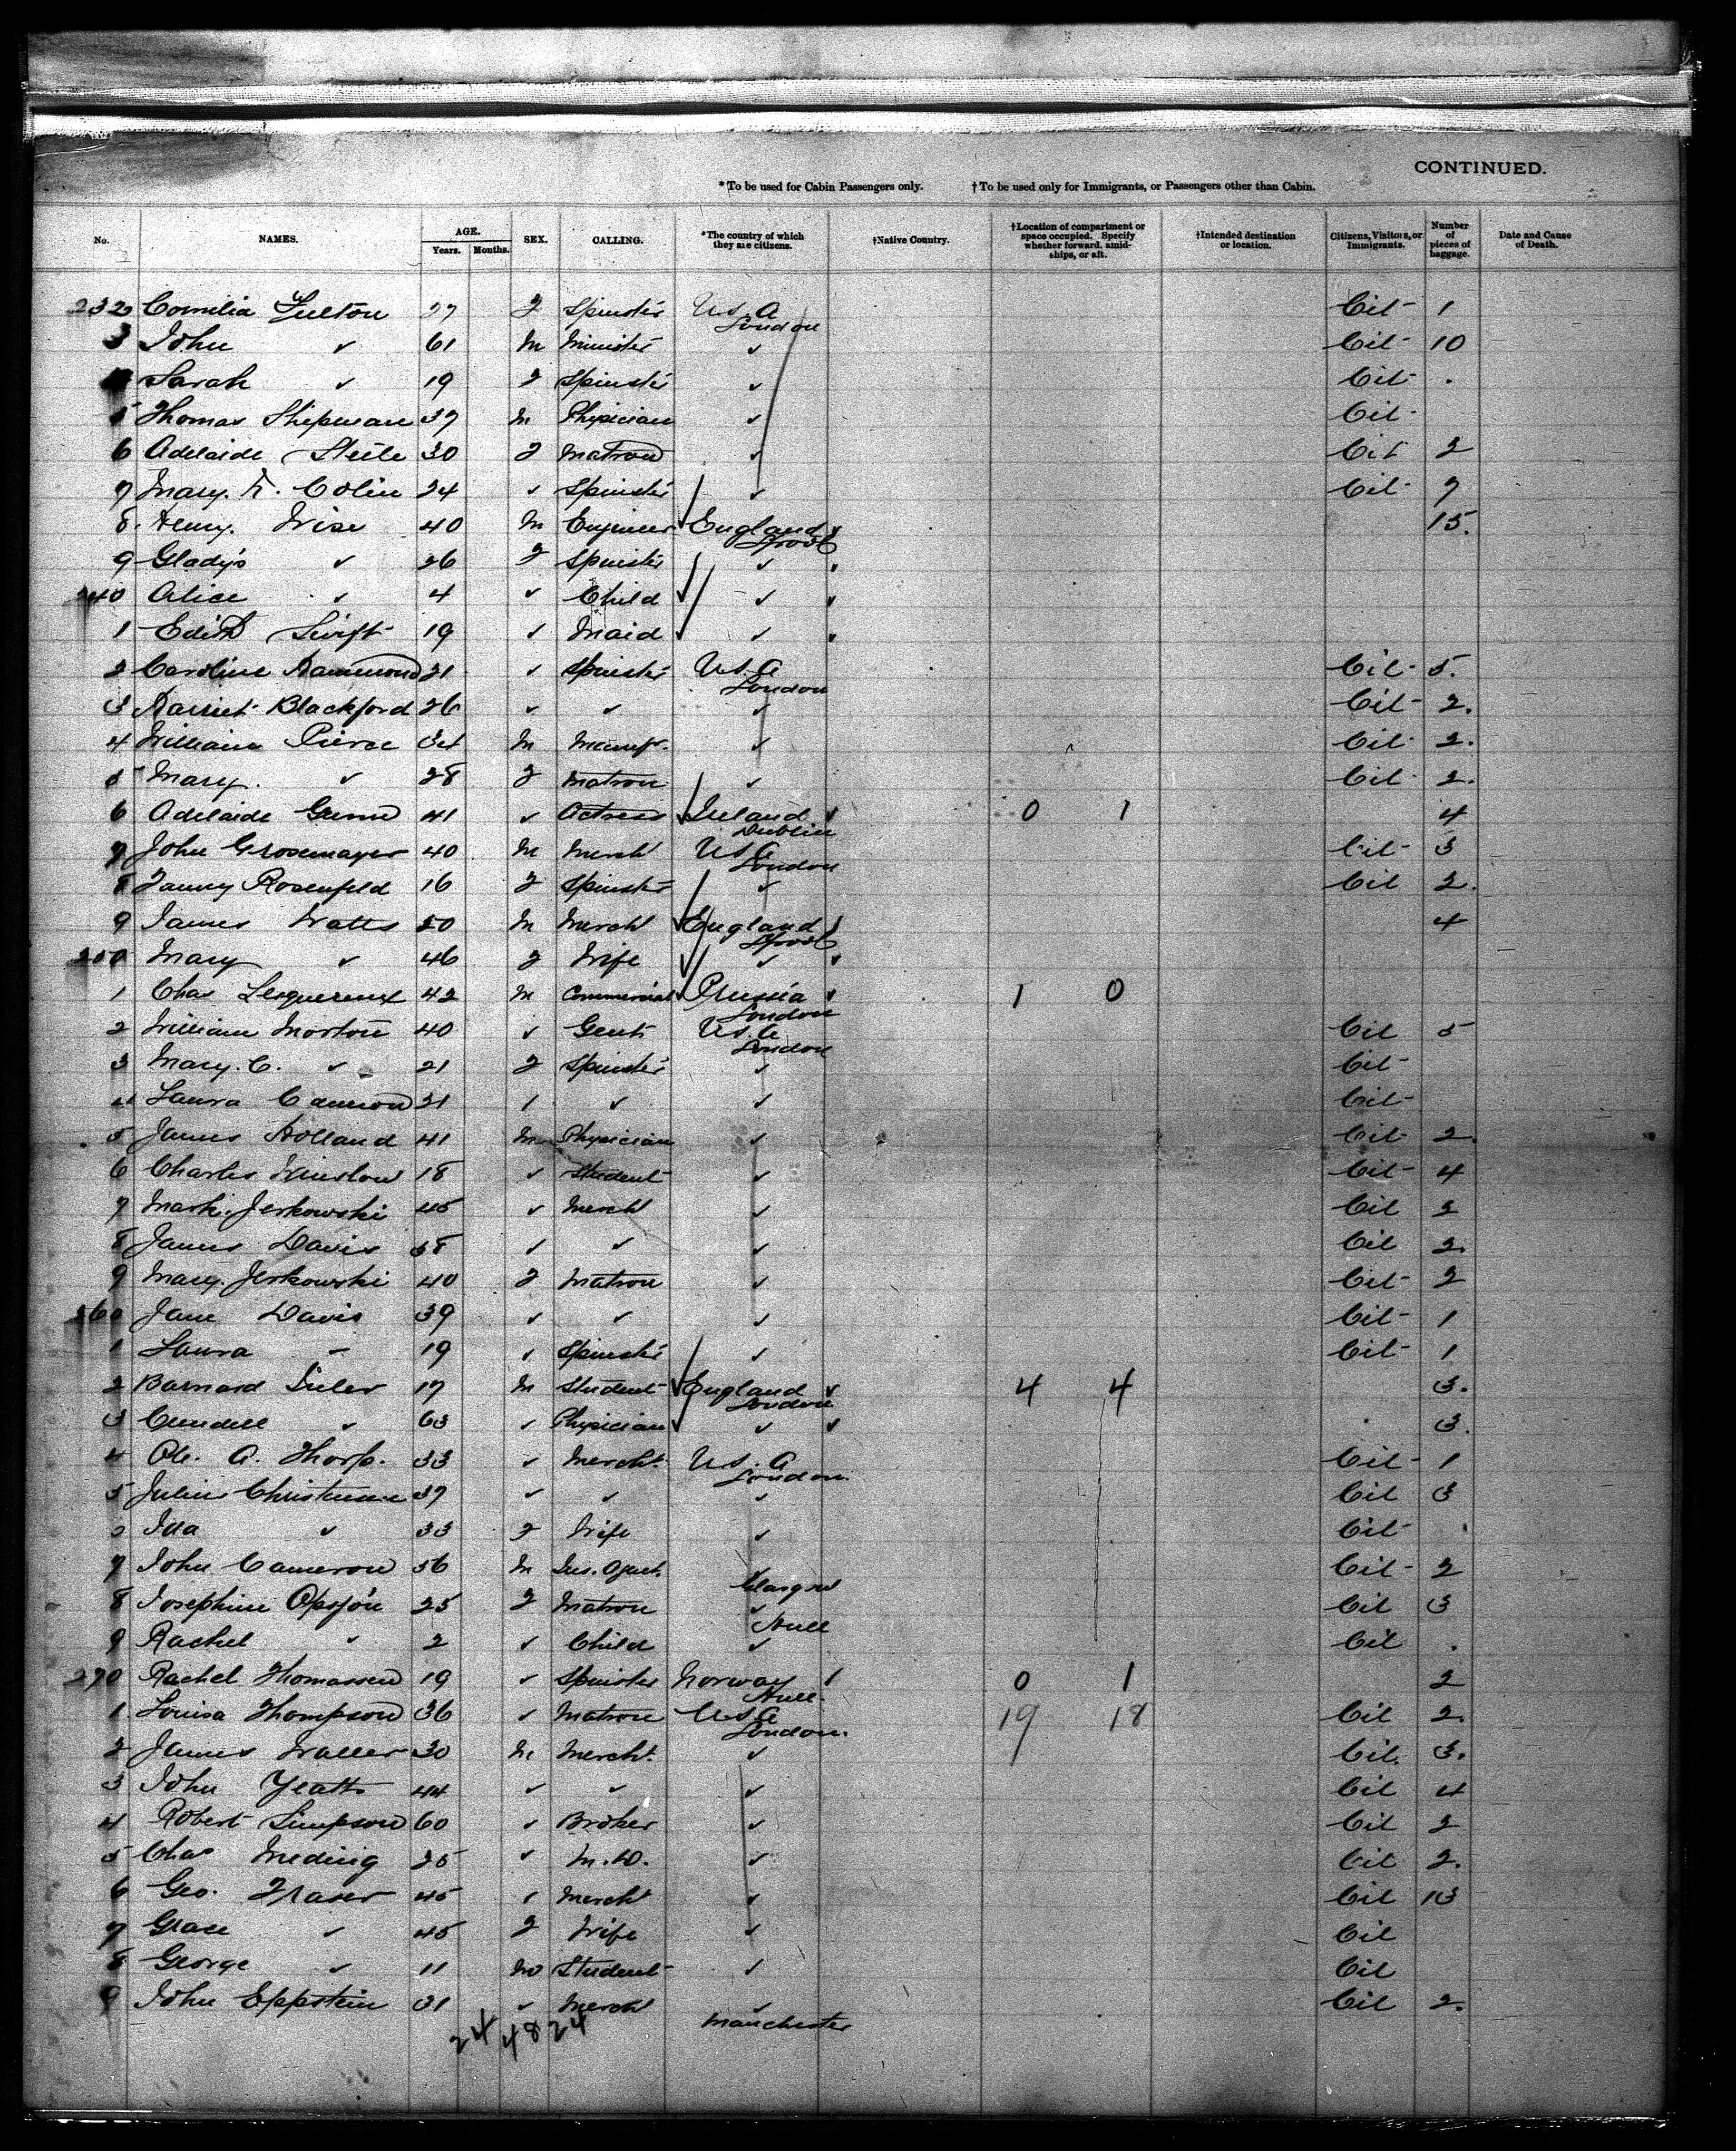 CONTINUED.
*To be used for Cabin Passengers only. †To be used only for Immigrants, or Passengers other than Cabin.
No. NAMES. AGE. Years. Months. SEX. CALLING. *The country of which they are citizens. †Native Country. †Location of compartment or space occupied. Specify whether forward, amidships, or aft. †Intended destination or location. Citizens, Visitors, or Immigrants. Number of pieces of baggage. Date and Cause of Death.
232 Fulton 27 F Spinster U.S.A London Cit 1
3 John ✓ 61 M Minister ✓ Cit 10
Sarah ✓ 19 F Spinster ✓ Cit
5 Thomas 37 M Physician ✓ Cit
6 Adelaide 30 F Matron ✓ Cit 2
7 Mary 24 ✓ Spinster ✓ Cit 7
8 Henry Wise 40 M Engineer England 15
9 Gladys ✓ 26 F Spinster ✓
240 Alice ✓ 4 ✓ Child ✓
1 Edith Swift 19 ✓ Maid ✓
2 Caroline Hammond 21 ✓ Spinster U.S.A London Cit 5.
3 Harriet Blackford 26 ✓ ✓ ✓ Cit 2.
4 William Pierce 34 M Manufr. ✓ Cit 2.
5 Mary ✓ 28 F Matron ✓ Cit 2.
6 Adelaide 41 ✓ Actress Ireland Dublin 0 1 4
7 John 40 M Mercht U.S.A London Cit 3
8 Fanny Rosenfeld 16 F Spinster ✓ Cit 2.
9 James Watts 50 M Mercht England 4
250 Mary ✓ 46 F Wife ✓
1 Chas 42 M Commercial Prussia London 1 0
2 William Morton 40 ✓ Gent U.S.A London Cit 5
3 Mary. C. ✓ 21 F Spinster ✓ Cit
4 Laura Cameron 21 ✓ ✓ Cit
5 James Holland 41 M Physician ✓ Cit 2.
6 Charles Winslow 18 ✓ Student ✓ Cit 4
7 Mark Jerkowski 45 ✓ Mercht ✓ Cit 2
8 James Davis 58 ✓ ✓ ✓ Cit 2.
9 Mary Jerkowski 40 F Matron ✓ Cit 2
260 Jane Davis 39 ✓ ✓ ✓ Cit 1
1 Laura ✓ 19 ✓ Spinster ✓ Cit 1
2 Barnard 17 M Student England London 4 4 3.
3 ✓ 63 ✓ Physician ✓ 3.
4 Ole. A. Thorp. 33 ✓ Mercht. U.S.A London. Cit 1
5 37 ✓ ✓ ✓ Cit 3
Ida ✓ 33 F Wife ✓ Cit
7 John Cameron 56 M Ins. Agent. Glasgow Cit 2
8 Josephine 25 F Matron ✓ Hull Cit 3
9 Rachel ✓ 2 ✓ Child ✓ Cit
270 Rachel Thomassen 19 ✓ Spinster Norway Hull. 0 1 2
1 Louisa Thompson 36 ✓ Matron U.S.A London. 19 18 Cit 2.
2 James Waller 30 M Mercht. ✓ Cit. 3.
3 John Yeatts 44 ✓ ✓ ✓ Cit 4
4 Robert Simpson 60 ✓ Broker ✓ Cit 2
5 Chas 25 ✓ M.D. ✓ Cit 2.
6 Geo. Fraser 45 ✓ Mercht ✓ Cit 13
7 Grace ✓ 45 F Wife ✓ Cit
8 George ✓ 11 M Student ✓ Cit
9 John Eppstein 31 ✓ Mercht ✓ Cit 2.
24 48 24 Manchester